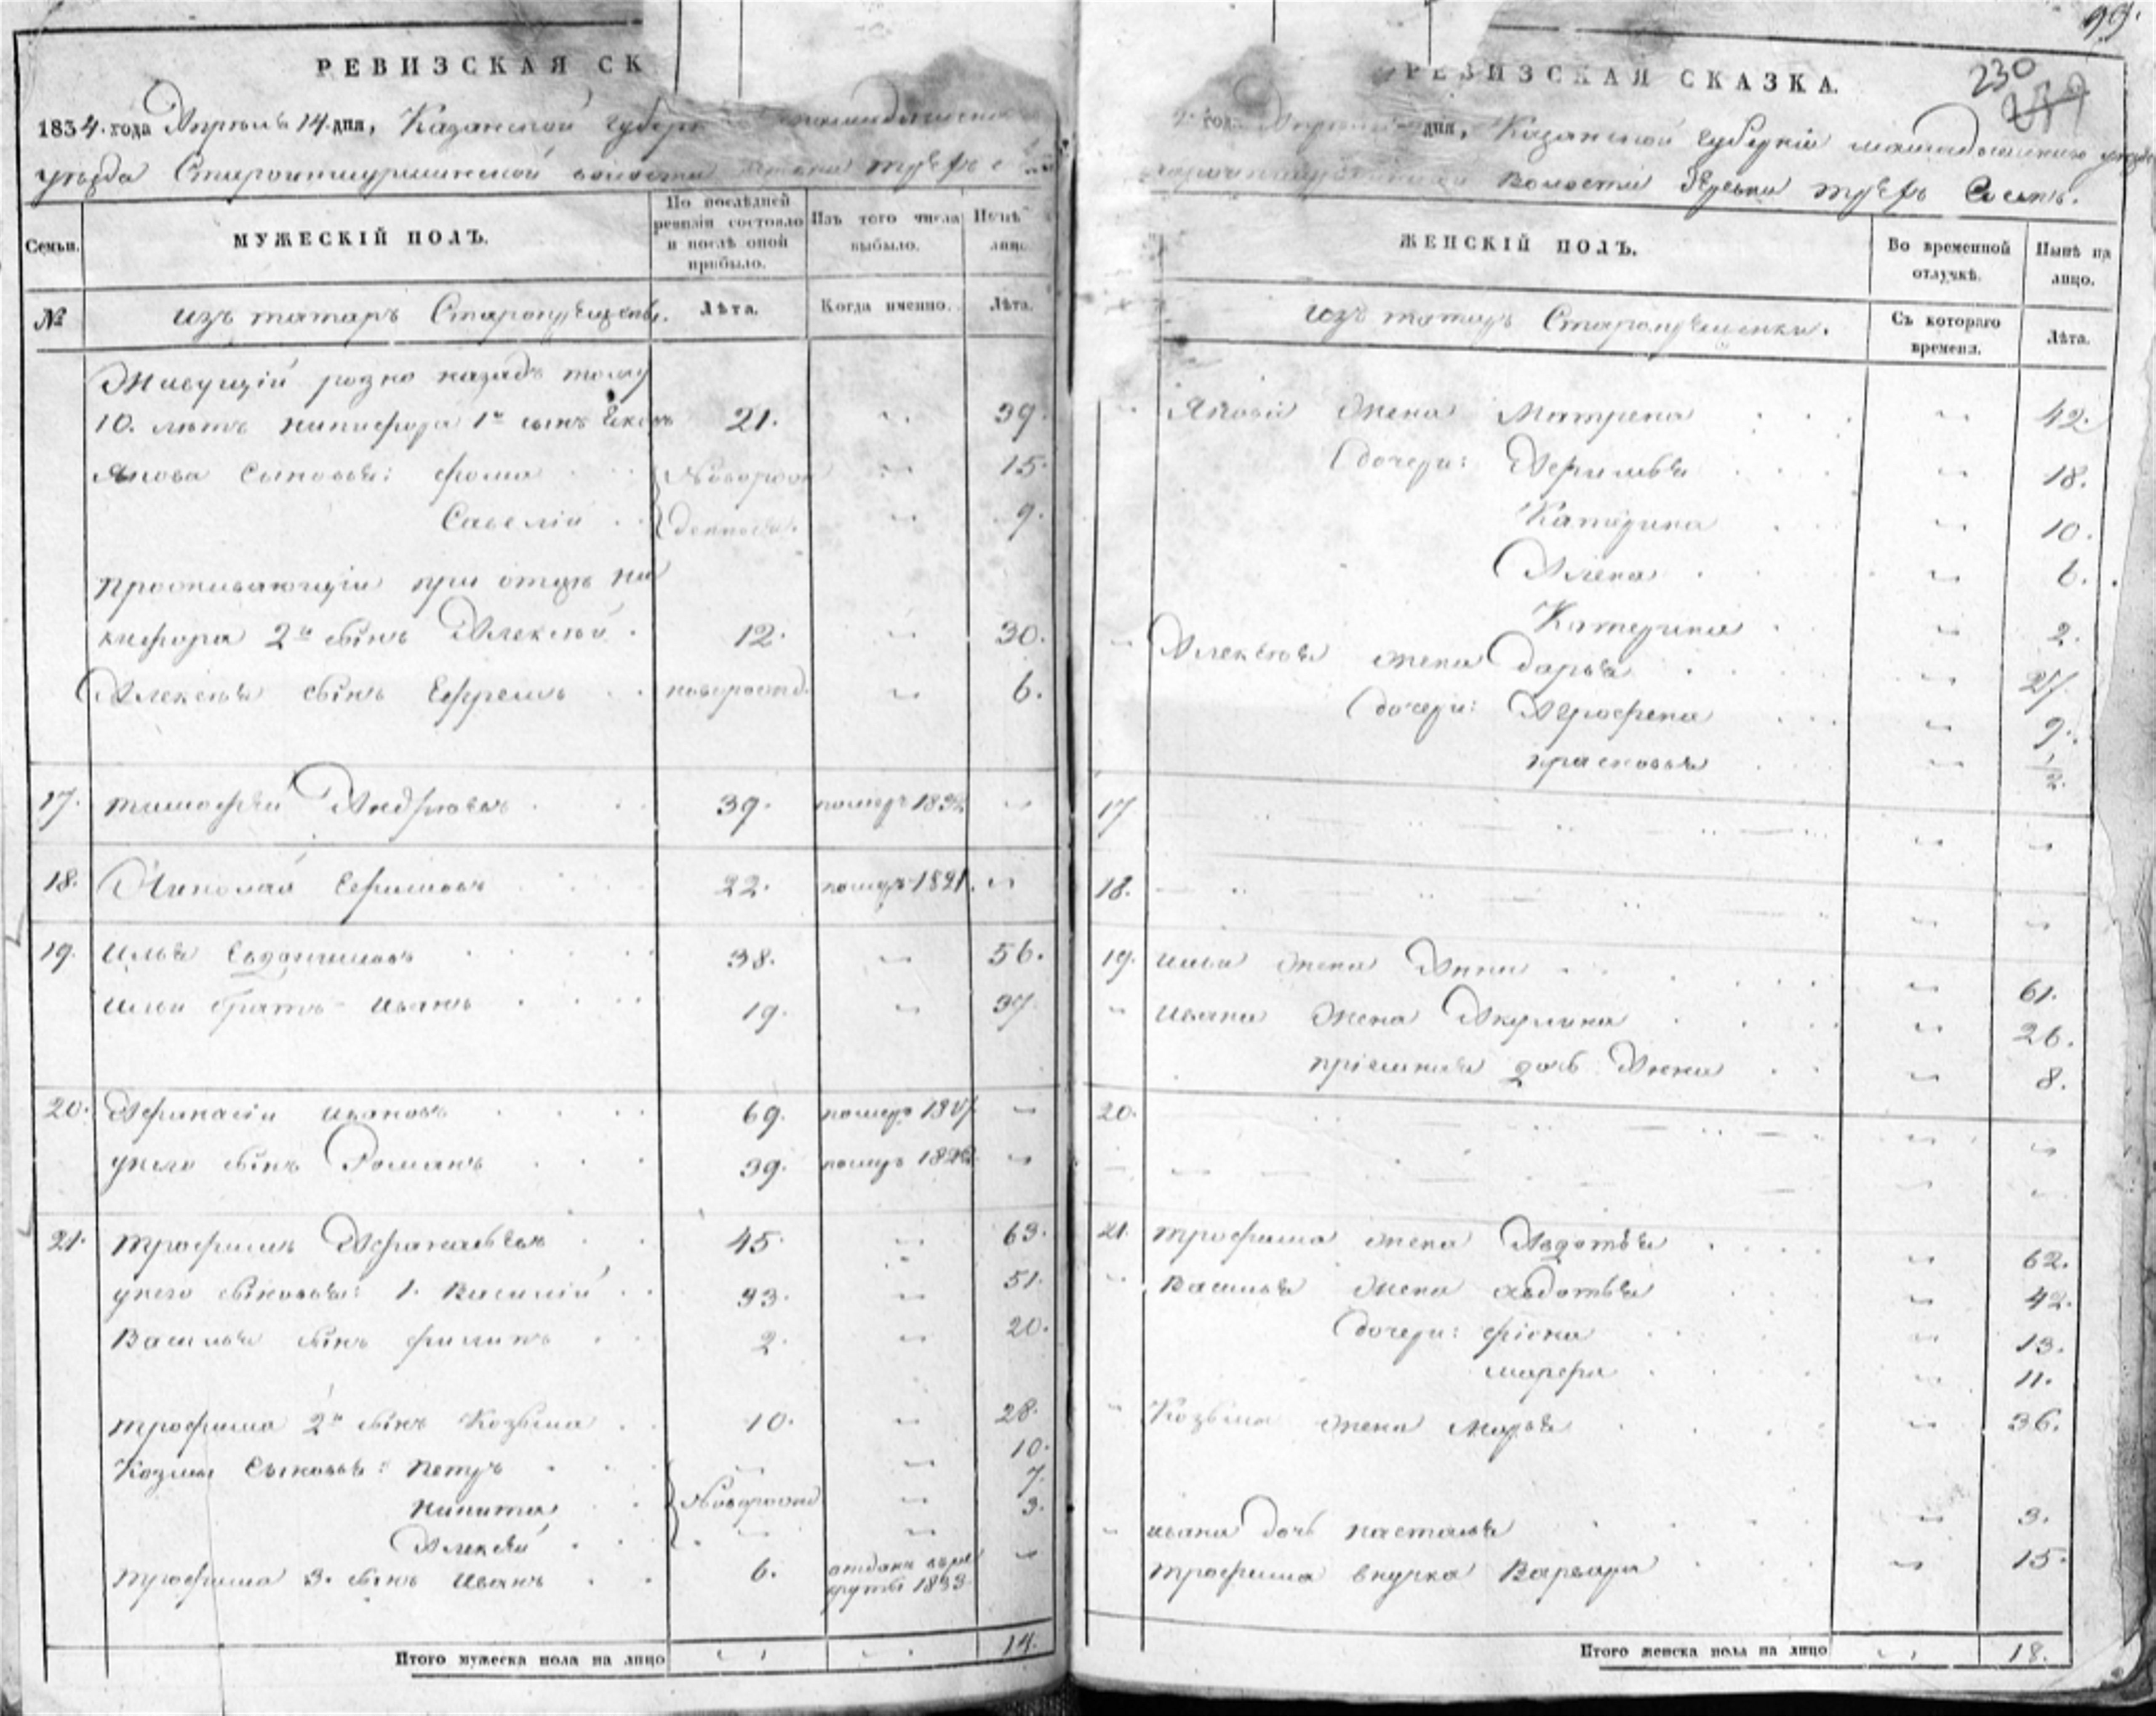 99.
РЕВИЗСКАЯ СК
1834. года Апреля 14. дня, Казанской Губер
уезда волости
Семьи.
МУЖЕСКІЙ ПОЛЪ.
По послѣдней ревизіи состояло и послѣ оной прибыло.
Изъ того числа выбыло.
Нынѣ лицо
№
изъ татаръ
Лѣта.
Когда именно.
Лѣта.
Живущій розно назадъ тому
10. летъ Никифора 1й сынъ 21. 39.
Якова Сыновья: Фома Новорож 15.
Савелій денныя. 9.
проживающій при отцѣ Ни
кифора 2й сынъ Алексѣй 12. 30.
Алексѣя сынъ Ефремъ новорожд. 6.
17. Тимофей Андреевъ 39. померъ 1832
18. Николай Ефимовъ 22. померъ 1821.
19. Илья Евдокимовъ 38. 56.
Ильи братъ Иванъ 19. 37.
20. Афанасій Ивановъ 69. померъ
у него сынъ Романъ 39. померъ
21. Трофимъ Афанасьевъ 45. 63.
у него сыновья: 1. Василій 33. 51.
Василья сынъ Филипъ 2. 20.
Трофима 2й сынъ Козьма 10. 28.
Козмы Сыновья: Петръ 10.
Никита Новорожд 7.
Алексѣй 3.
Трофима 3. сынъ Иванъ 6. отданъ въ ре
круты 1833.
Итого мужеска пола на лицо 14.
РЕВИЗСКАЯ СКАЗКА.
230
год Апреля дня, Казанской Губерніи уезда
волости Деревни
ЖЕНСКІЙ ПОЛЪ.
Во временной отлучкѣ.
Нынѣ на лицо.
изъ татаръ
Съ котораго времени.
Лѣта.
Якова Жена Матрена 42.
дочери: 18.
Катерина 10.
Алена 6.
Катерина 2.
Алексѣя жена Дарья 27.
дочери: Аграфена 9.
Прасковья 1/2.
17.
18.
19. Ильи жена Анна 61.
Ивана Жена Акулина 26.
пріемная дочь Анна 8.
20.
21. Трофима жена Авдотья 62.
Василья Жена Авдотья 42.
дочери: 13.
Марфа 11.
Козьмы жена Марья 36.
Ивана дочь Настасья 3.
Трофима внучка Варвара 15.
Итого женска пола на лицо 18.